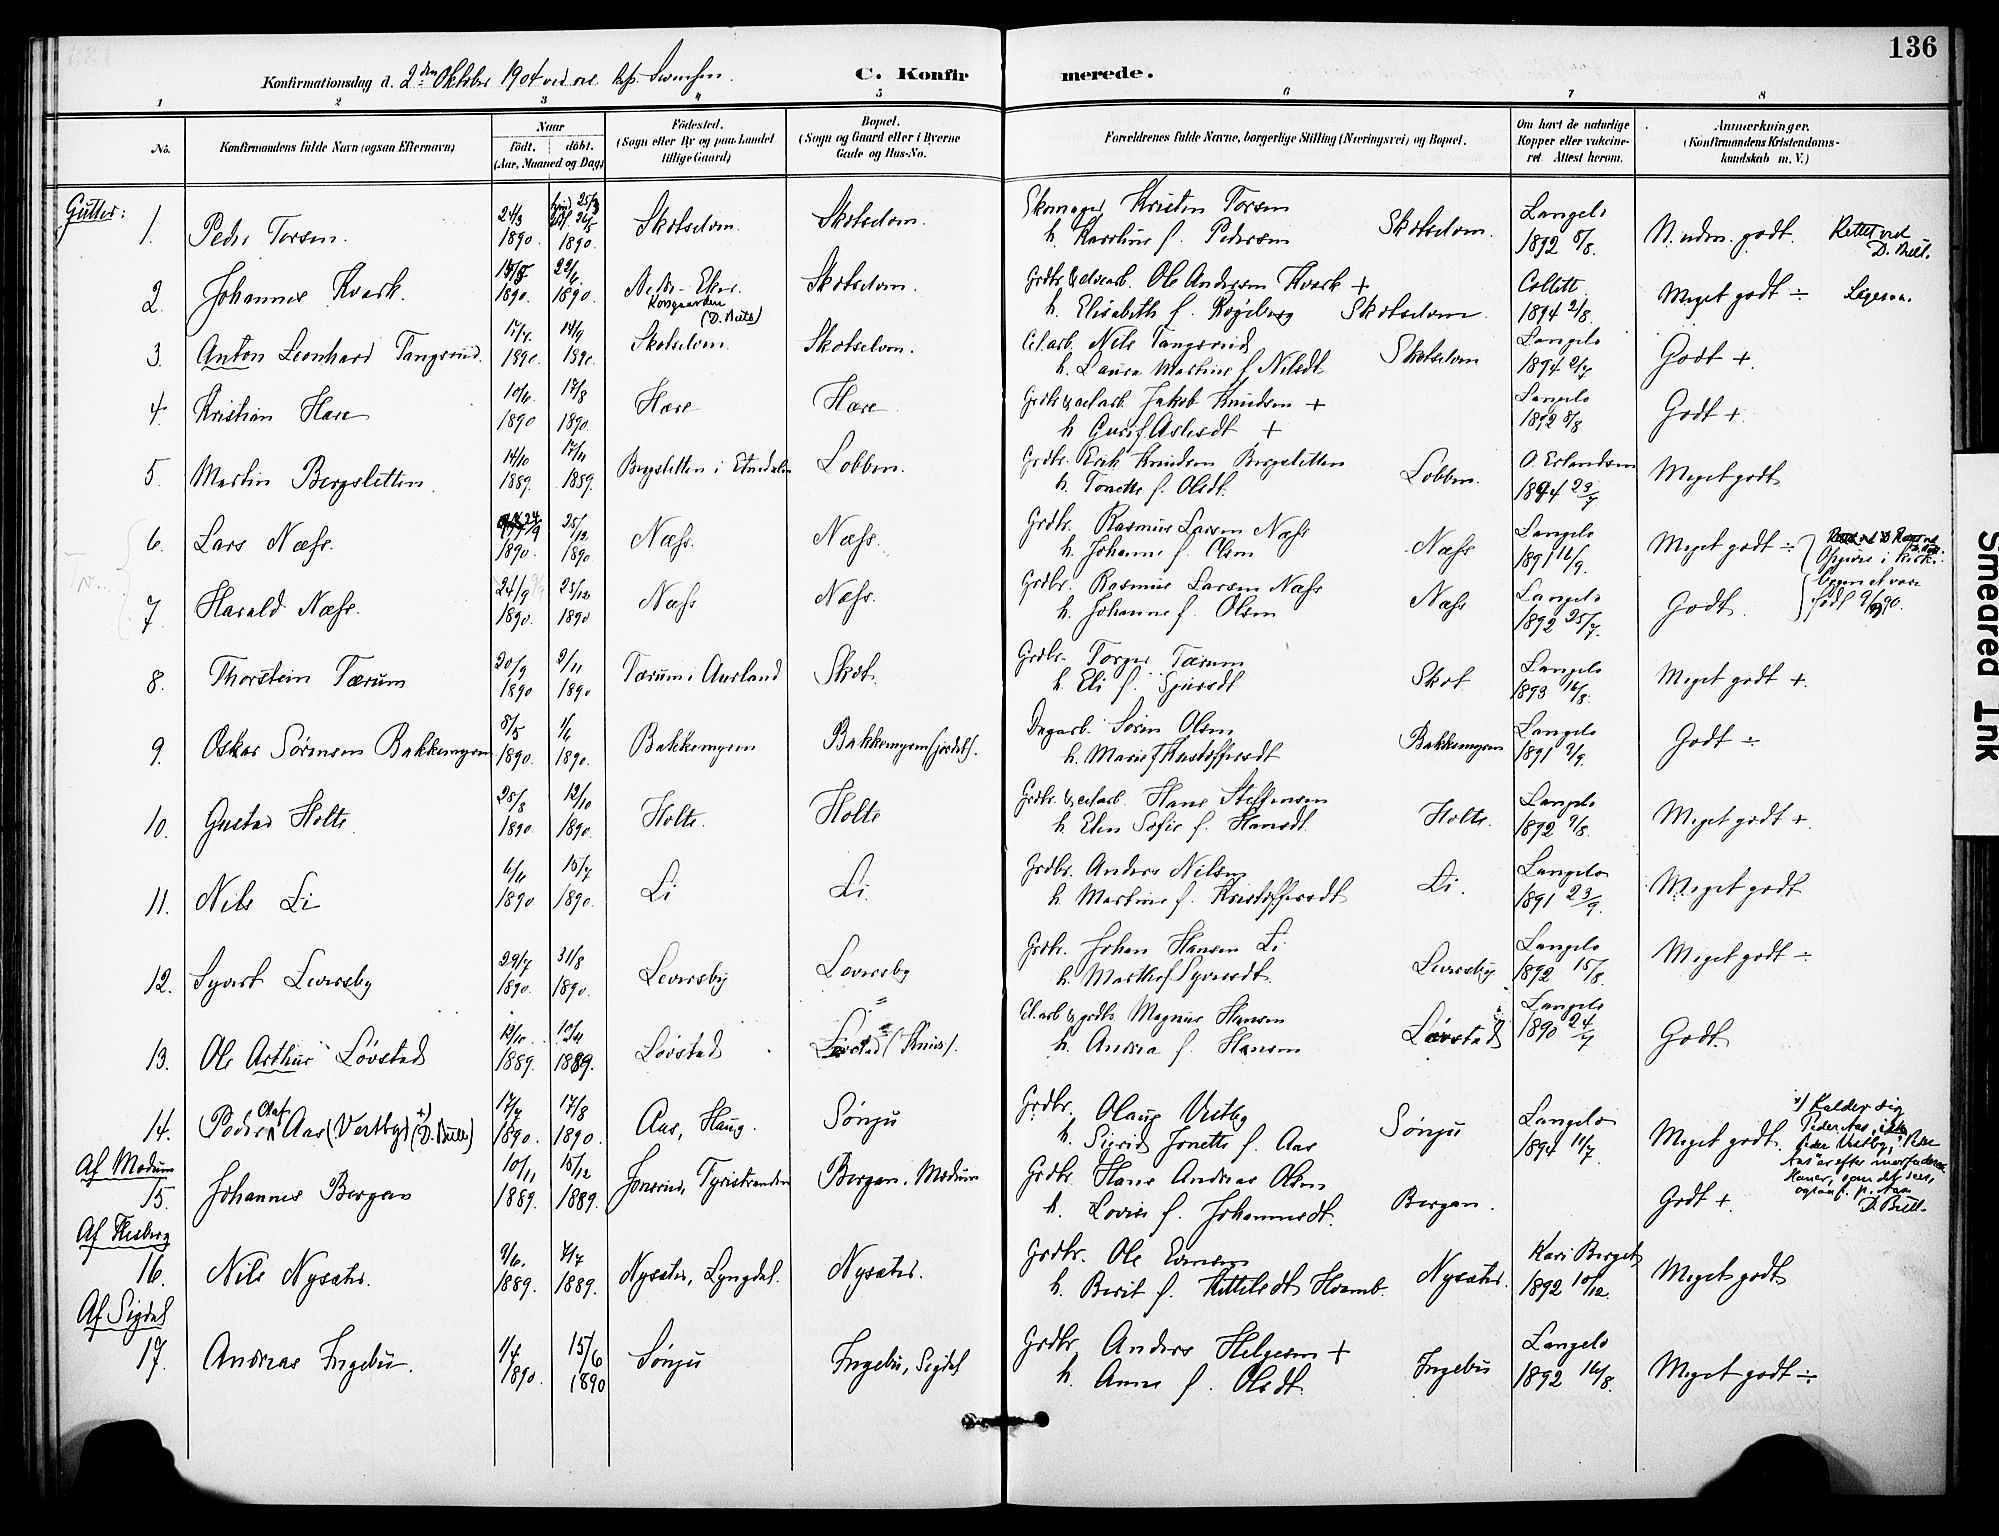 136
Konfirmationsdag d. 2den Oktober 1904 ved res. kap. Svensen.
C. Konfirmerede.
1 2 3 4 5 6 7 8
No. Konfirmandens fulde Navn (ogsaa Efternavn) Naar født. døbt. (Aar, Maaned og Dag) Fødested. (Sogn eller By og paa Landet tillige Gaard) Bopæl. (Sogn og Gaard eller i Byerne Gade og Hus-No. Forældrenes fulde Navne, borgerlige Stilling (Næringsvei) og Bopæl. Om havt de naturlige Kopper eller vakcineret Attest herom. Anmærkninger. (Konfirmandens Kristendomskundskab m. V.)
Gutter:
1. Peder Torsen. 24/3 1890. 1890. Skotselven. Skotselven. Skomager Kristen Torsen Langelo
h. Karoline f. Pedersen Skotselven. 1892 8/8. N. uden. godt. Rettet ved D. Bull.
2. Johannes Kvark. 1890. 22/6 1890. Nedre-Eker. Kongaarden (D. Bull) Skotselven. Grdbr. & elvearb. Ole Andersen Kvark + Collett
h. Elisabeth f. Røgeberg Skotselven. 1894 2/8. Meget godt ÷
3. Anton Leonhard Tangerud. 17/7 1890. 14/9 1890. Skotselven. Skotselven. Cel.arb. Nils Tangerud Langelo
h. Laura Martine f. Nilsdt Skotselven 1894 2/7 Godt +
4. Kristian Hære 10/6. 1890 17/8 1890. Hære Hære. Grdbr & cel.arb. Jakob Knudsen + Langelo
h. Guri f. Aslesdt + 1892 8/8 Godt +
5. Martin Bergsletten. 14/10 1889. 17/11 1889. Bergsletten i Etnedalen Lobben. Grdbr. Erik Knudsen Bergsletten O. Erlandsen
h. Tonette f. Olsdt. Lobben. 1894 23/7 Meget godt
6. Lars Næss. 24/9 1890. 25/12 1890 Næss. Næss. Grdbr. Rasmus Larsen Næss Langelo
h. Johanne f. Olsen Næss 1891 11/9. Meget godt ÷ Opgives i Kirkebogen at være født 9/9 90.
7. Harald Næss. 24/9 1890. 25/12 1890 Næss Næss. Grdbr. Rasmus Larsen Næss Langelo
h. Johanne f. Olsen Næss 1892 25/7. Godt.
8. Thorstein Tærum 20/9 1890 2/11 1890 Tærum i Aurland Skot. Grdbr. Torger Tærum Langelo
h. Eli f. Sjursdt Skot. 1893 16/8. Meget godt +
9. Oskar Sørensen Bakkemyren 8/5 1890. 1/6 1890. Bakkemyren Bakkemyren (jordet). Dagarb. Søren Olsen Langelo
h. Marie f. Kristoffersdt Bakkemyren 1891 9/9. Godt ÷
10. Gustav Holte. 25/8 1890. 12/10 1890. Holte. Holte Grdbr. & cel.arb. Hans Steffensen Langelo
h. Elen Sofie f. Hansdt. Holte. 1892 9/8. Meget godt +.
11. Nils Li 6/6 1890. 15/7 1890. Li Li. Grdbr. Anders Nilsen Langelo
h. Martine f. Kristoffersdt Li. 1891 23/9. Meget godt
12. Syvert Leversby 29/7 1890. 31/8 1890. Leversby Leversby Grdbr. Johan Hansen Li Langelo
h. Marthe f. Syversdt. Leversby 1892 15/8. Meget godt ÷
13. Ole Arthur Løvstad 12/10 1889. 1889. Løvstad Løvstad (Knive). Cel.arb & grdbr. Magnus Hansen Langelo
h. Andrea f. Hansen Løvstad 1890 24/7 Godt.
14. Peder Olaf Aas (Vestby) +) (D. Bull) 17/7 1890. 17/8 1890. Aas, Haug. Sønju Grdbr. Olaus Vestby Langelo
h. Sigrid Jonette f. Aas Sønju 1894 11/7 Meget godt. +) Kalder sig Peder Aas, ikke Peder Vestby, "Peder Aas" er efter morfaderen. D. Bull.
Af Modum
15. Johannes Bergan 10/11 1889. 15/12 1889. Jonsrud, Tyristranden Bergan. Modum Grdbr. Hans Andreas Olsen
h. Lovise f. Johannesdt. Bergan. Godt +
Af Flesberg
16. Nils Nysæter. 9/6. 1889. 7/7 1889. Nysæter, Lyngdal. Nysæter. Grdbr. Ole Evensen Kari Berget
h. Berit f. Kittilsdt Hvamb. Nysæter. 1892 10/12. Meget godt
Af Sigdal
17. Andreas Ingebu. 1/4 1890. 15/6 1890 Sønju Ingebu, Sigdal Grdbr. Anders Helgesen + Langelo
h. Anne f. Olsdt. Ingebu 1892 16/8. Meget godt ÷
Smeared Ink